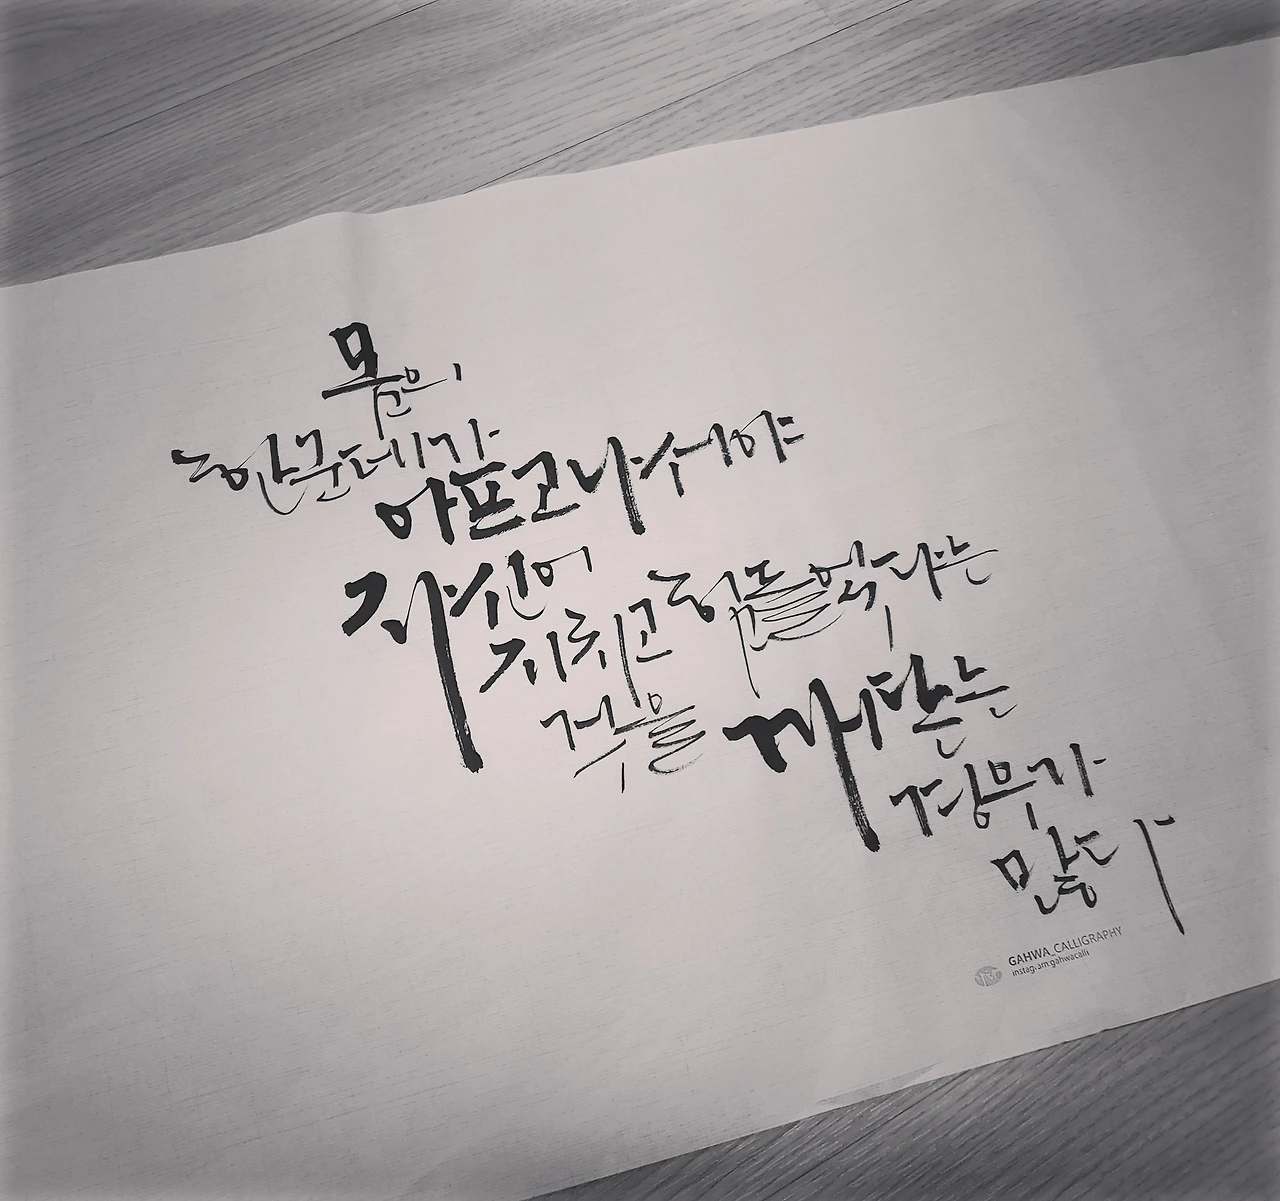 몸의
한군데가
아프고나서야
자신이
지치고 힘들었다는
것을 깨닫는
경우가
많다
GAHWA_CALLIGRAPHY
instagram:gahwacalli